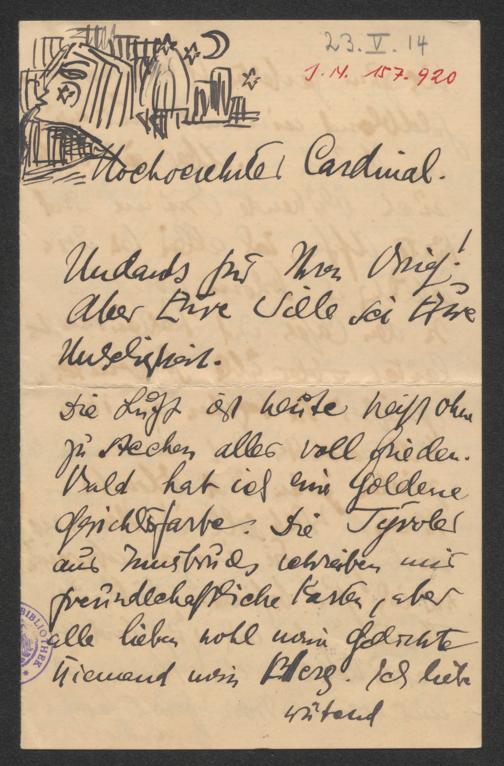 23.V.14
I.N. 157.920
Hochverehrter Cardinal.
Undank für Ihren Brief!
Aber Eure Stille sei Eure
Unseligkeit.
Die Luft ist heute heiß ohne
zu stechen alles voll Frieden.
Bald hat ich eine goldene
Gesichtsfarbe. Die Tyroler
aus Innsbruck schreiben mir
freundschaftliche Karten, aber
alle lieben wohl mein Gedichte
Niemand mein Herz. Ich liebe
wütend
BIBLIOTHEK